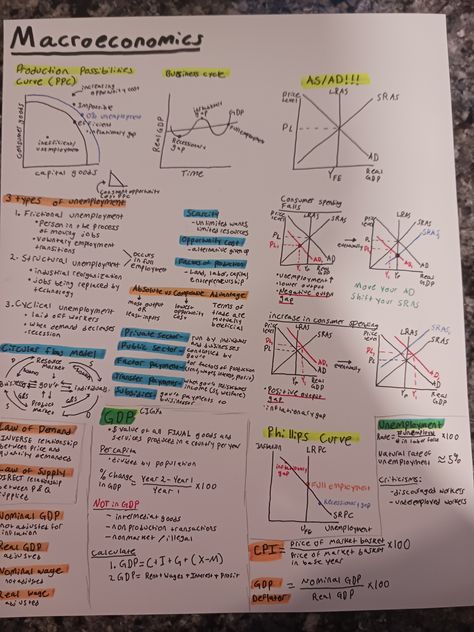 Macroeconomics
Production Possibilities
Curve (PPC)
increasing
opportunity cost
impossible
0% unemployment
efficient
inflationary gap
inefficient/
unemployment
consumer goods
capital goods
constant opportunity
cost PPC
Business cycle
inflationary
gap
GDP
full employment
Recessionary
gap
Real GDP
Time
AS/AD!!!
Price
level
LRAS
SRAS
PL
AD
YFE
Real
GDP
3 types of unemployment
1. Frictional unemployment
• Person in the process
of moving jobs
• voluntary employment
transitions
2. Structural unemployment
• industrial reorganization
• Jobs being replaced by
technology
occurs
in full
employment
3. Cyclical unemployment
• laid off workers
• when demand declines
recession
Scarcity
- unlimited wants,
limited resources
Opportunity cost
- alternative given up
Factors of production
- Land, labor, capital
entrepreneurship
Absolute vs Comparative Advantage
most output
or
least inputs
lowest
opportunity
cost
Terms of
trade are
mutually
beneficial
Private sector - run by individuals
and businesses
Public sector - controlled by
govt
Factor payments - for factors of production
(rent, wages, interest, profit)
Transfer payments - when govt redistributes
income (SS, welfare)
Subsidies - govt payments to
businesses
Consumer spending
falls
Price
level
LRAS
SRAS
PL
PL1
AD
AD1
Y1
YF
Real
GDP
eventually
Price
level
LRAS
SRAS
SRAS1
AD
AD1
Real
GDP
• unemployment ↑
• lower output
• Negative output
gap
Move your AD
Shift your SRAS
increase in consumer spending
Price
level
LRAS
SRAS
PL1
PL
AD
Real
GDP
eventually
Price
level
LRAS
SRAS1
SRAS
Real
GDP
• Positive output
gap
• inflationary gap
Circular flow model
Resource
market
Businesses
govt
Product
market
S
D
GDP
$ value of all FINAL goods and
services produced in a country per year
Per capita
• divided by population
% change
in GDP
= Year 2 - Year 1
Year 1
x100
NOT in GDP
- intermediate goods
- nonproduction transactions
- nonmarket / illegal
Calculate
1. GDP = C + I + G + (X-M)
2. GDP = Rent + Wages + Interest + Profit
Law of Demand
INVERSE relationship
between price and
quantity demanded
Law of Supply
DIRECT relationship
between P & Q
supplied
Nominal GDP
not adjusted for
inflation
Real GDP
adjusted
Nominal wage
not adjusted
Real wage
adjusted
Phillips Curve
inflation
LRPC
inflationary
gap
Full employment
Recessionary gap
SRPC
unemployment
Unemployment
Rate = # unemployed
# in labor force
x100
Natural rate of
unemployment ≈ 5%
Criticisms:
- discouraged workers
- underemployed workers
CPI = Price of market basket
Price of market basket
in base year
x100
GDP
Deflator
= Nominal GDP
Real GDP
x100